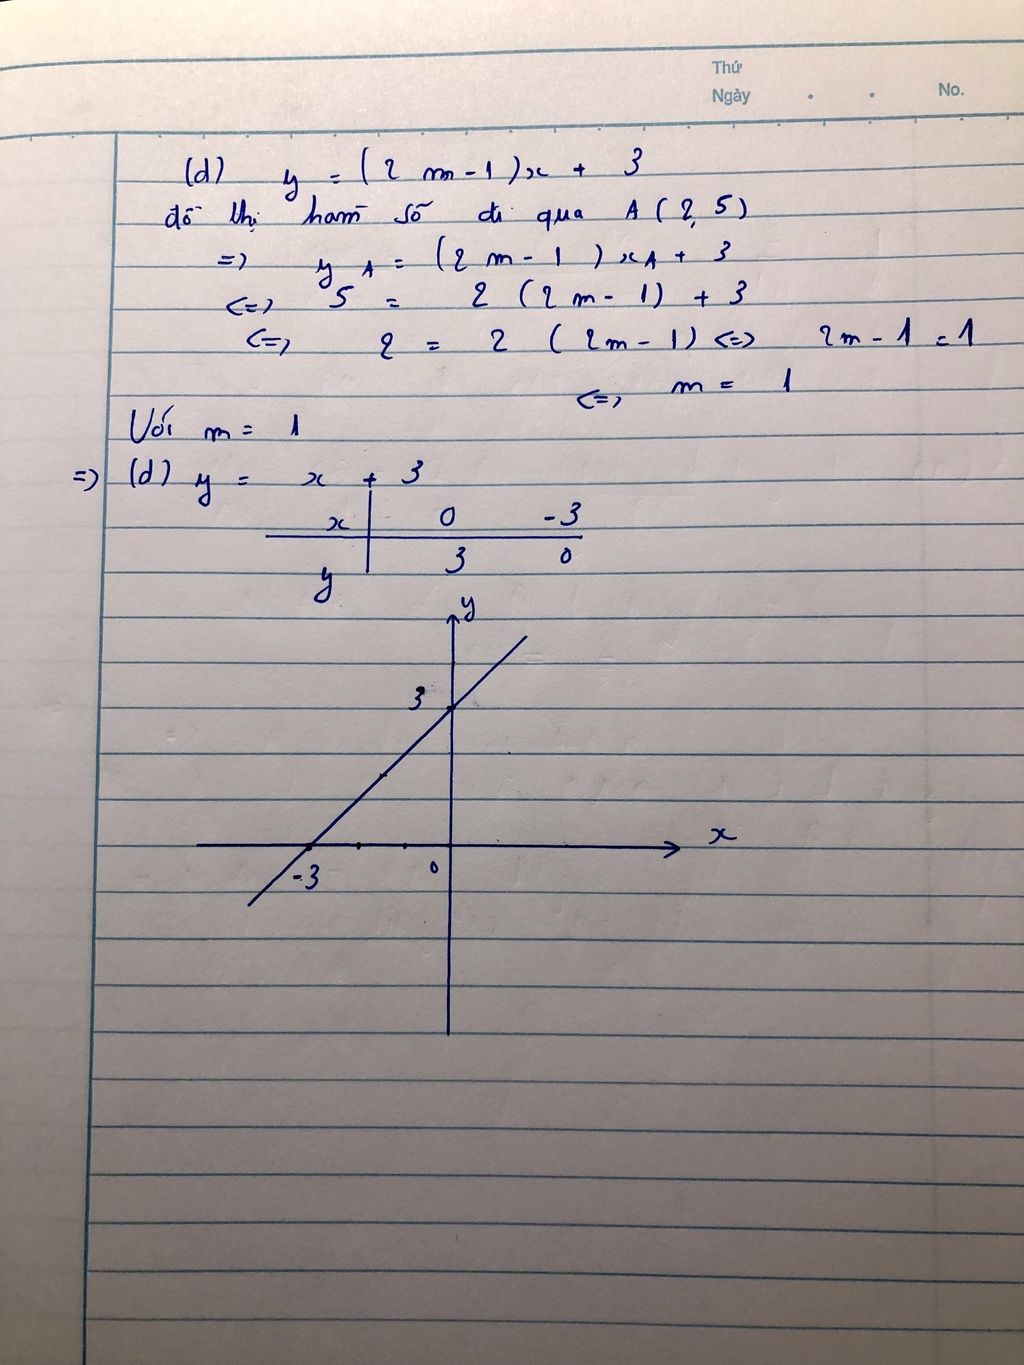 Thứ
Ngày . . No.
(d) y = (2m-1)x + 3
đồ thị hàm số đi qua A(2,5)
=> yA = (2m-1)xA + 3
<=> 5 = 2(2m-1) + 3
<=> 2 = 2(2m-1) <=> 2m-1 = 1
<=> m = 1
Với m = 1
=> (d) y = x + 3
x 0 -3
y 3 0
y
3
x
-3 0